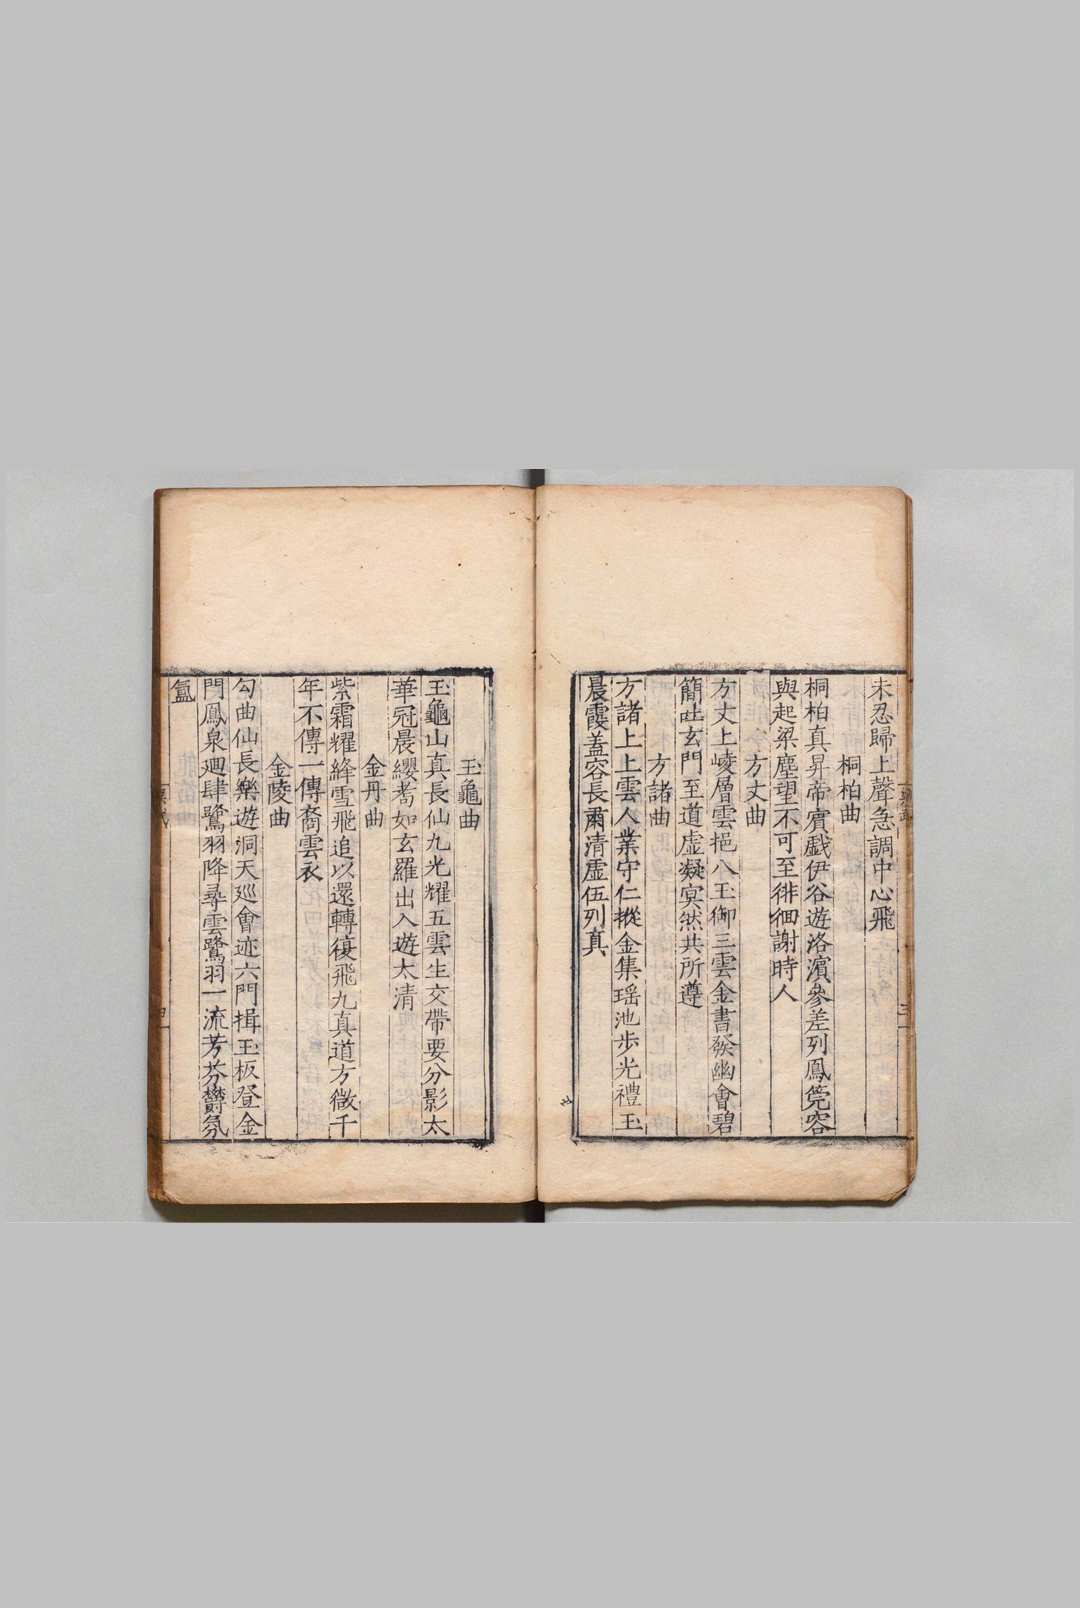 未忍歸上聲急調中心飛
桐柏曲
桐柏真昇帝賓戲伊谷遊洛濱參差列鳳筦容
與起梁塵望不可至徘徊謝時人
方丈曲
方丈上崚層雲挹八玉御三雲金書發幽會碧
簡吐玄門至道虛凝冥然共所遵
方諸曲
方諸上上雲人業守仁摐金集瑶池步光禮玉
晨霞蓋容長肅清虛伍列真
玉龜曲
玉龜山真長仙九光耀五雲生交帶要分影太
華冠晨纓耈如玄羅出入遊太清
金丹曲
紫霜耀絳雪飛追以還轉復飛九真道方微千
年不傳一傳裔雲衣
金陵曲
勾曲仙長樂遊洞天廵會迹六門揖玉板登金
門鳳泉廻肆鷺羽降尋雲鷺羽一流芳芬欝氛
氲